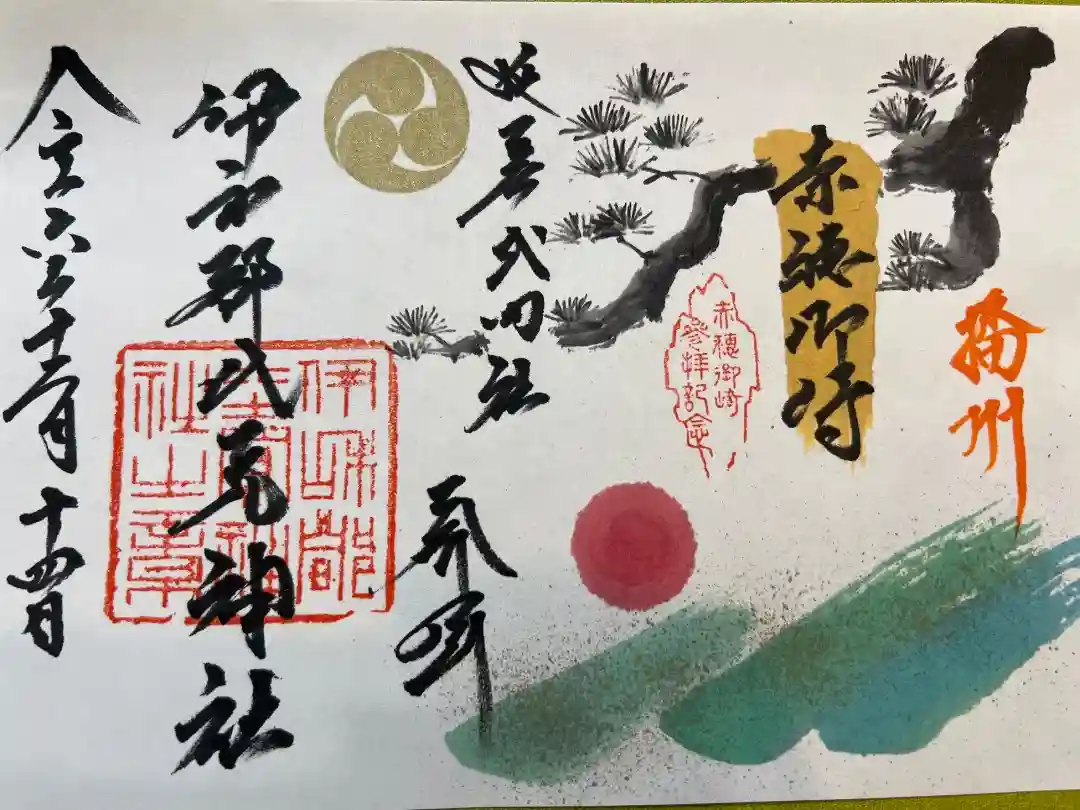 播州
赤穂御崎
赤穂御崎
參拝記念
延喜式内社
奉拝
伊和都比売神社
伊和都
比賣神
社之章
令和六年十二月十四日